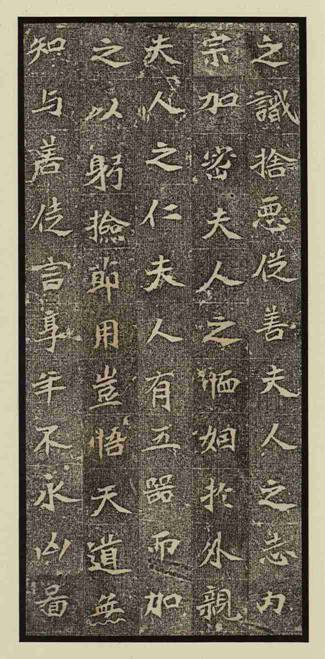 之識捨惡從善夫人之志内
宗加密夫人之恤姻扵外親
夫人之仁夫人有五器而加
之以躬撿節用豈悟天道無
知与善徒言享年不永凶啚